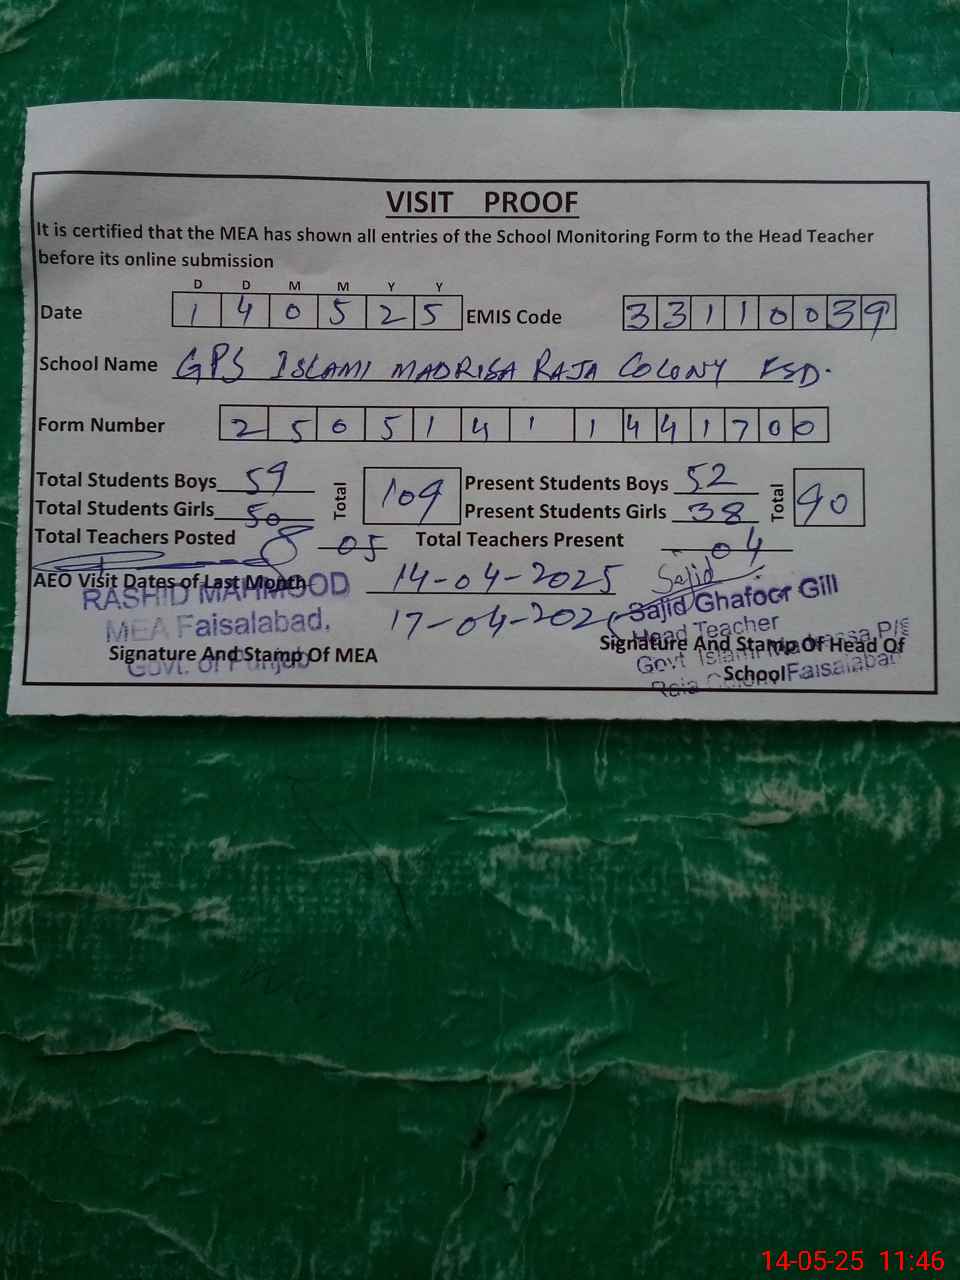 VISIT PROOF
It is certified that the MEA has shown all entries of the School Monitoring Form to the Head Teacher
before its online submission
D D M M Y Y
Date 1 4 0 5 2 5 EMIS Code 3 3 1 1 0 0 3 9
School Name GPS ISLAMI MADRISA RAJA COLONY FSD.
Form Number 2 5 0 5 1 4 1 1 4 4 1 7 0 0
Total Students Boys 59 Total 109 Present Students Boys 52 Total 90
Total Students Girls 50 Present Students Girls 38
Total Teachers Posted 05 Total Teachers Present 04
AEO Visit Dates of Last Month 14-04-2025
17-04-202
Sajid
RASHID MAHMOOD
MEA Faisalabad,
Govt. of Punjab
Signature And Stamp Of MEA
Sajid Ghafoor Gill
Head Teacher
Govt Islami Madrassa P/S
Raja Colony Faisalabad
Signature And Stamp Of Head Of
School
14-05-25 11:46